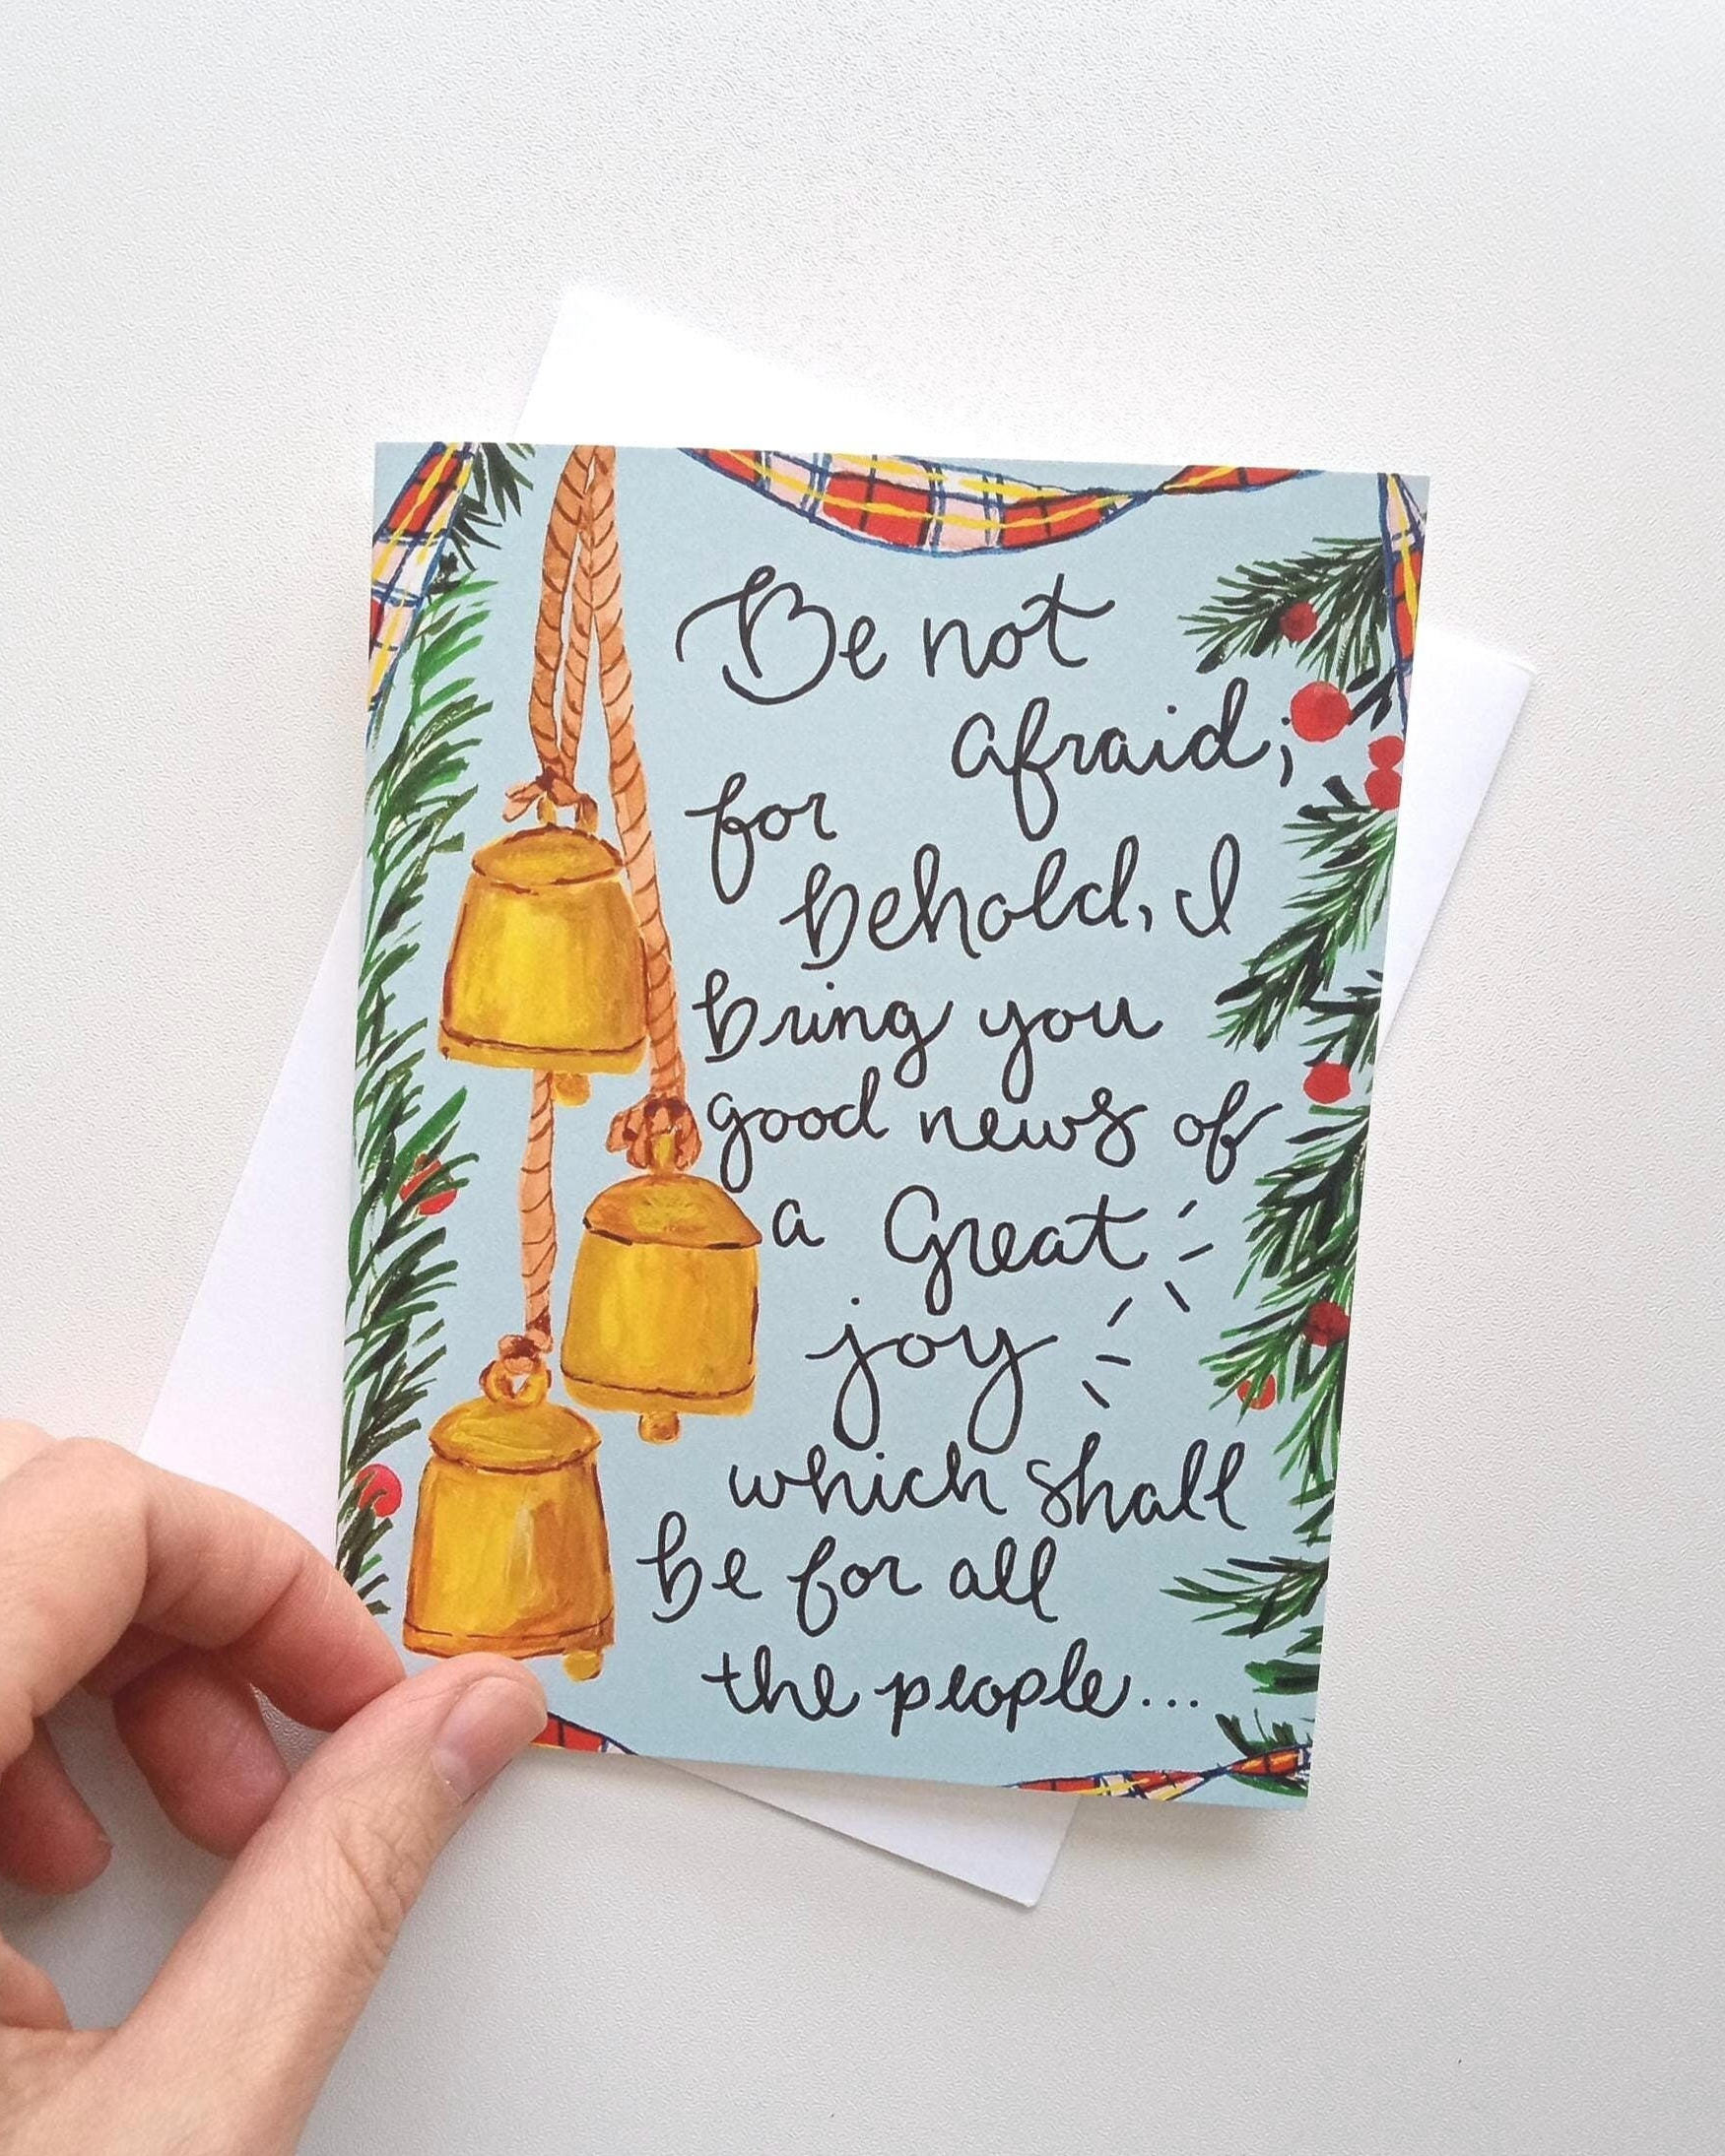 Be not
afraid;
for
behold, I
bring you
good news of
a Great
joy
which shall
be for all
the people...